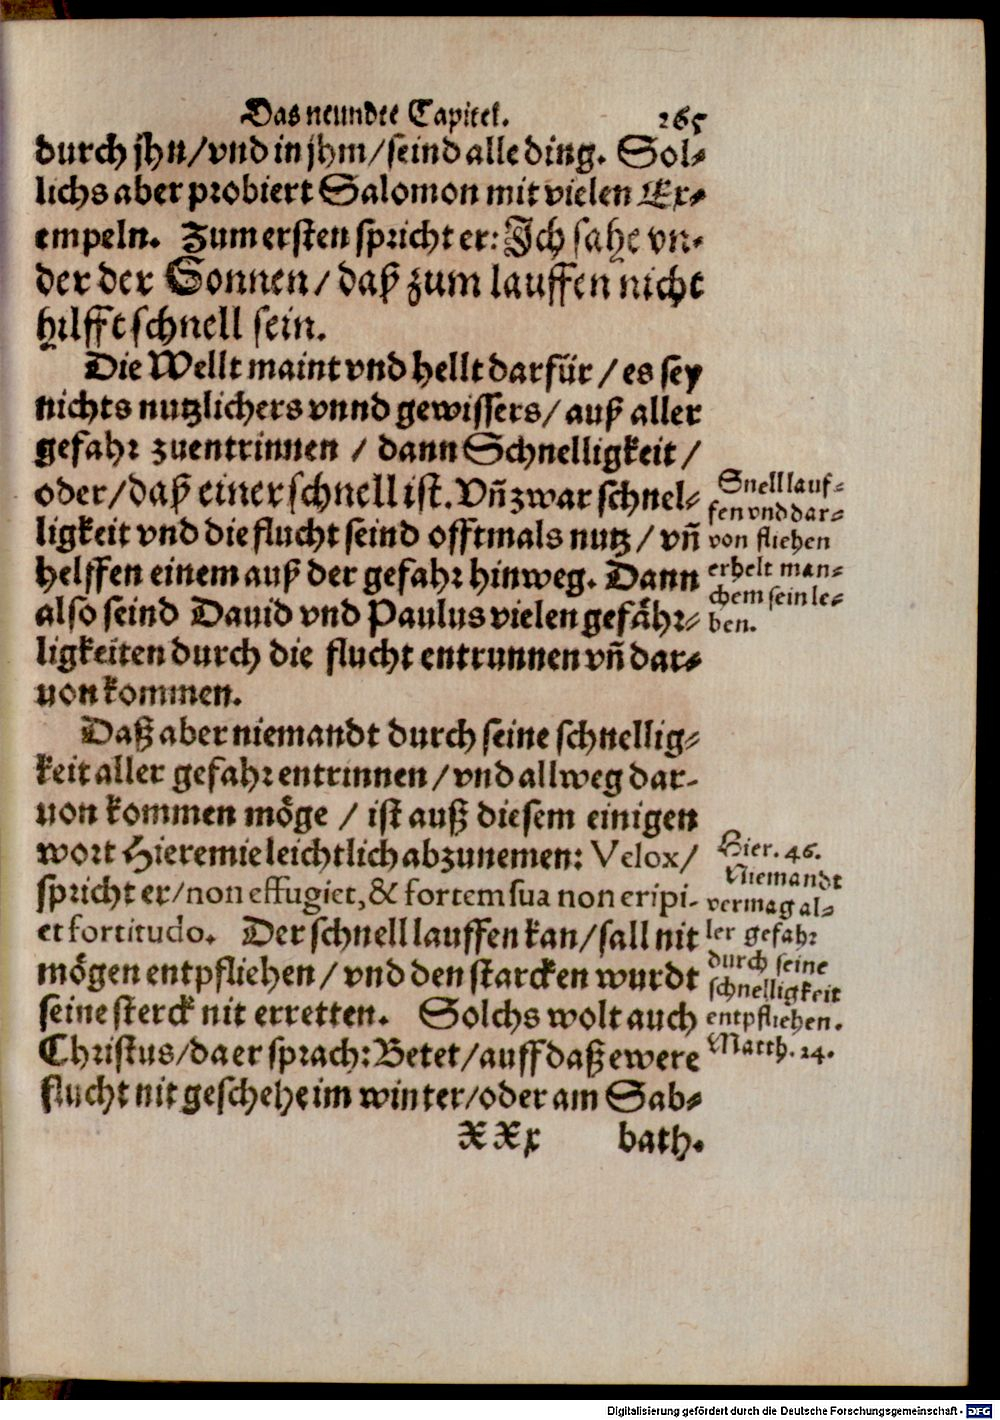 Das neundte Capitel. 265
durch jhn/vnd in jhm/seind alle ding. Sol-
lichs aber probiert Salomon mit vielen Ex-
empeln. Zum ersten spricht er: Ich sahe vn-
der der Sonnen/daß zum lauffen nicht
hilfft schnell sein.
Die Wellt maint vnd hellt darfür/es sey
nichts nutzlichers vnnd gewissers/auß aller
gefahr zuentrinnen/dann Schnelligkeit/
oder/daß einer schnell ist. Vñ zwar schnel-
ligkeit vnd die flucht seind offtmals nutz/vñ
helffen einem auß der gefahr hinweg. Dann
also seind Dauid vnd Paulus vielen gefähr-
ligkeiten durch die flucht entrunnen vñ dar-
uon kommen.
Snell lauf-
fen vnd dar-
von fliehen
erhelt man-
chem sein le-
ben.
Daß aber niemandt durch seine schnellig-
keit aller gefahr entrinnen/vnd allweg dar-
uon kommen möge/ist auß diesem einigen
wort Hieremie leichtlich abzunemen: Velox/
spricht er/non effugiet, & fortem sua non eripi-
et fortitudo. Der schnell lauffen kan/sall nit
mögen entpfliehen/vnd den starcken wurdt
seine sterck nit erretten. Solchs wolt auch
Christus/da er sprach: Betet/auff daß ewere
flucht nit geschehe im winter/oder am Sab-
Hier. 46.
Niemandt
vermag al-
ler gefahr
durch seine
schnelligkeit
entpfliehen.
Matth. 24.
XXx bath.
Digitalisierung gefördert durch die Deutsche Forschungsgemeinschaft - DFG